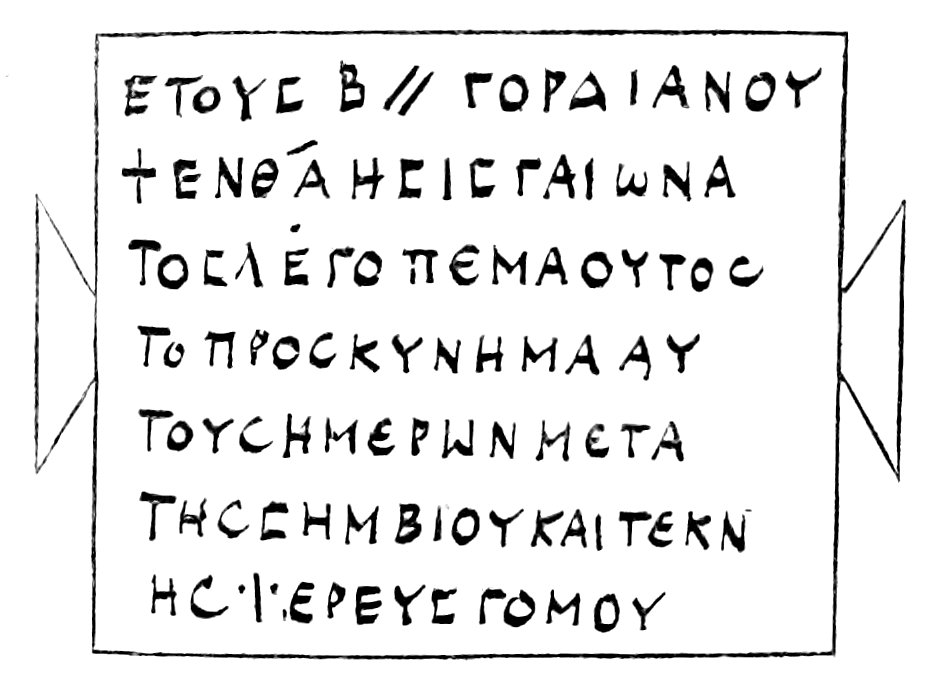 ΕΤΟΥΣ Β // ΓΟΡΔΙΑΝΟΥ
†ΕΝΘΆΗΣΙΣΓΑΙΩΝΑ
ΤΟΣΛΈΓΟΠΕΜΑΟΥΤΟΣ
ΤΟΠΡΟΣΚΥΝΗΜΑΑΥ
ΤΟΥΣΗΜΕΡΩΝΜΕΤΑ
ΤΗΣΣΗΜΒΙΟΥΚΑΙΤΕΚΝ
ΗΣΪΕΡΕΥΣΓΟΜΟΥ